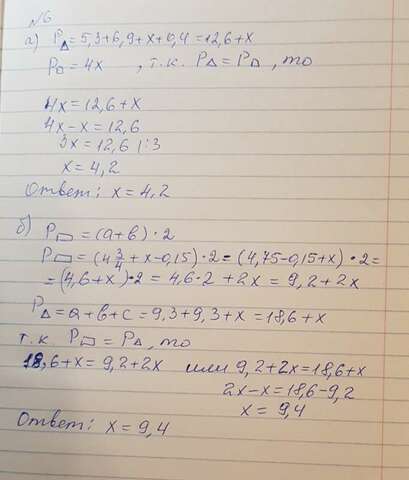 №6
а) P△ = 5,3+6,9+x+0,4 = 12,6+x
P□ = 4x , т.к. P△ = P□ , то
4x = 12,6+x
4x-x = 12,6
3x = 12,6 |:3
x = 4,2
Ответ: x = 4,2
б) P▭ = (a+b)·2
P▭ = (4 3/4 + x - 0,15)·2 = (4,75-0,15+x)·2 =
= (4,6+x)·2 = 4,6·2 + 2x = 9,2+2x
P△ = a+b+c = 9,3+9,3+x = 18,6+x
т.к. P▭ = P△, то
18,6+x = 9,2+2x или 9,2+2x = 18,6+x
2x-x = 18,6-9,2
x = 9,4
Ответ: x = 9,4